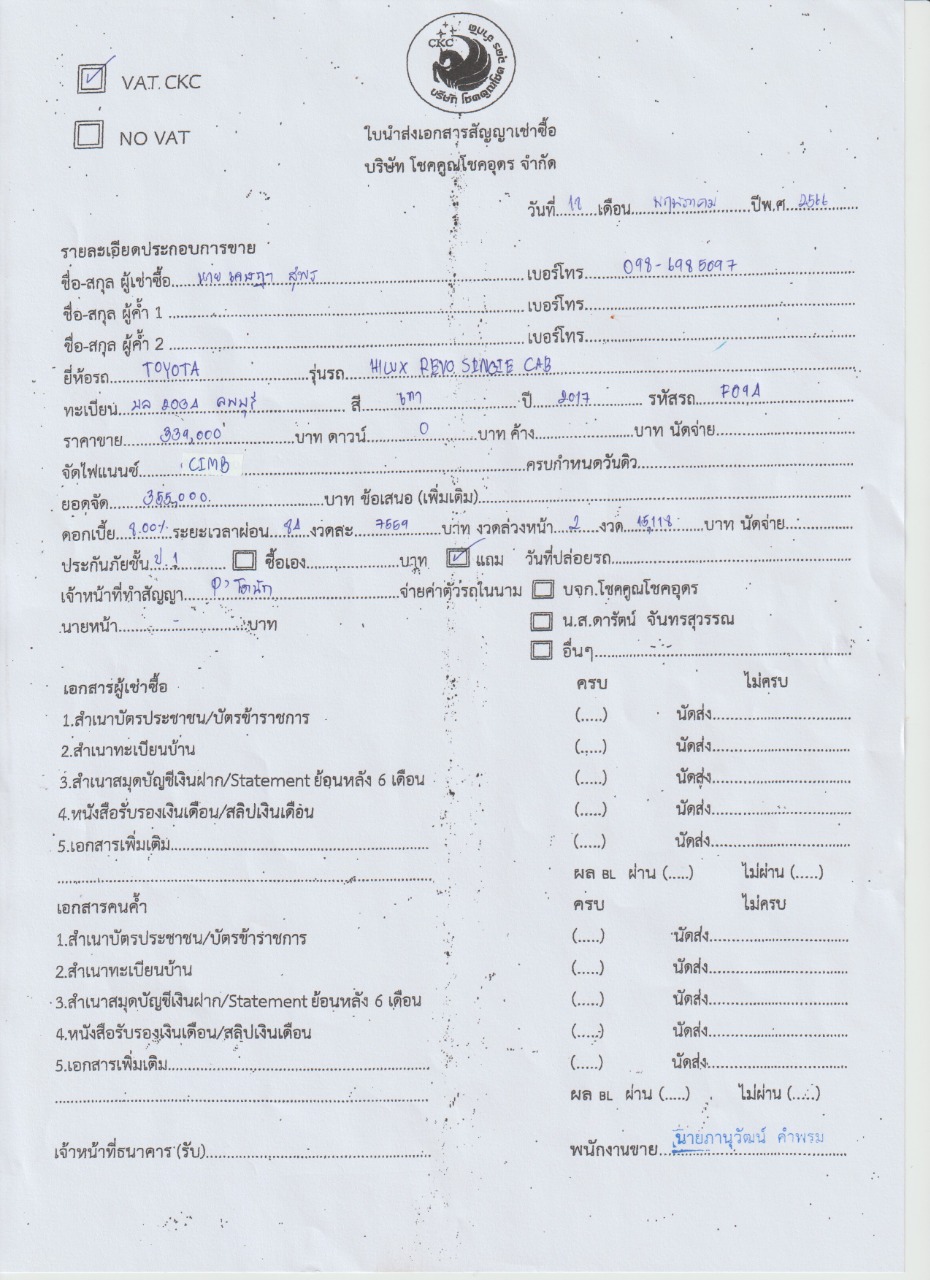 CKC
บริษัท โชคคูณโชค อุดร จำกัด
VAT. CKC
NO VAT
ใบนำส่งเอกสารสัญญาเช่าซื้อ
บริษัท โชคคูณโชคอุดร จำกัด
วันที่ 12 เดือน พฤษภาคม ปีพ.ศ. 2566
รายละเอียดประกอบการขาย
ชื่อ-สกุล ผู้เช่าซื้อ นาย เบอร์โทร 098-6985097
ชื่อ-สกุล ผู้ค้ำ 1 เบอร์โทร
ชื่อ-สกุล ผู้ค้ำ 2 เบอร์โทร
ยี่ห้อรถ TOYOTA รุ่นรถ HILUX REVO SINGIE CAB
ทะเบียน ลพบุรี สี เทา ปี 2017 รหัสรถ F091
ราคาขาย 339,000 บาท ดาวน์ 0 บาท ค้าง บาท นัดจ่าย
จัดไฟแนนซ์ CIMB ครบกำหนดวันดิว
ยอดจัด 355,000 บาท ข้อเสนอ (เพิ่มเติม)
ดอกเบี้ย 8.00% ระยะเวลาผ่อน 84 งวดสะ 7559 บาท งวดล่วงหน้า 2 งวด 15,118 บาท นัดจ่าย
ประกันภัยชั้น ป.1 ซื้อเอง บาท แถม วันที่ปล่อยรถ
เจ้าหน้าที่ทำสัญญา จ่ายค่าตัวรถในนาม บจก.โชคคูณโชคอุดร
นายหน้า - บาท น.ส.ดารัตน์ จันทรสุวรรณ
อื่นๆ
เอกสารผู้เช่าซื้อ ครบ ไม่ครบ
1.สำเนาบัตรประชาชน/บัตรข้าราชการ (.....) นัดส่ง
2.สำเนาทะเบียนบ้าน (.....) นัดส่ง
3.สำเนาสมุดบัญชีเงินฝาก/Statement ย้อนหลัง 6 เดือน (.....) นัดส่ง
4.หนังสือรับรองเงินเดือน/สลิปเงินเดือน (.....) นัดส่ง
5.เอกสารเพิ่มเติม (.....) นัดส่ง
ผล BL ผ่าน (.....) ไม่ผ่าน (.....)
เอกสารคนค้ำ ครบ ไม่ครบ
1.สำเนาบัตรประชาชน/บัตรข้าราชการ (.....) นัดส่ง
2.สำเนาทะเบียนบ้าน (.....) นัดส่ง
3.สำเนาสมุดบัญชีเงินฝาก/Statement ย้อนหลัง 6 เดือน (.....) นัดส่ง
4.หนังสือรับรองเงินเดือน/สลิปเงินเดือน (.....) นัดส่ง
5.เอกสารเพิ่มเติม (.....) นัดส่ง
ผล BL ผ่าน (.....) ไม่ผ่าน (.....)
เจ้าหน้าที่ธนาคาร (รับ) พนักงานขาย นายภานุวัฒน์ คำพรม